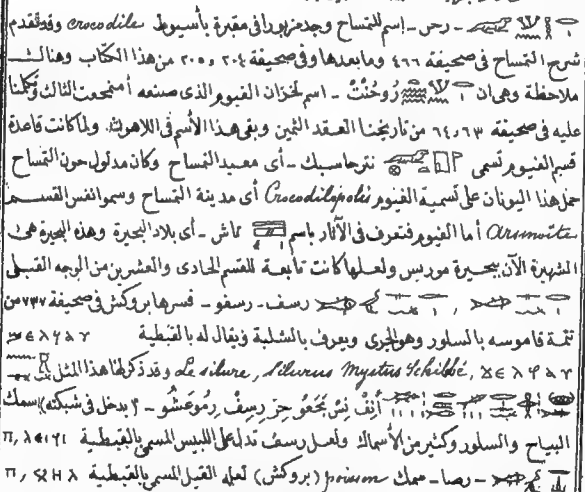 - رحن - اسم للتمساح وجد مزبورا في مقبرة بأسيوط crocodile وقد تقدم
شرح التمساح في صحيفة ٤٦٦ وما بعدها وفي صحيفة ٢٠٤ و ٢٠٥ من هذا الكتاب وهناك
ملاحظة وهي ان رُوحُنْتْ - اسم لخزان الفيوم الذي صنعه أمنمحعت الثالث وتكلمنا
عليه في صحيفة ٦٣ و ٦٤ من تاريخنا العقد الثمين وبقي هذا الأسم في اللاهون ولما كانت قاعدة
قسم الفيوم تسمى نترحاسبك - أي معبد التمساح وكان مدلول حون التمساح
حمل هذا اليونان على تسمية الفيوم Crocodilopolis أي مدينة التمساح وسموا نفس القسم
Arsinoïte أما الفيوم فتعرف في الآثار باسم تاش - أي بلاد البحيرة وهذه البحيرة هي
الشهيرة الآن ببحيرة موريس ولعلها كانت تابعة للقسم الحادي والعشرين من الوجه القبلي
رسف - رسفو - فسرها بروكش في صحيفة ٧٣٧ من
تتمة قاموسه بالسلور وهو الجرى ويعرف بالشلبة ويقال له بالقبطية
Le silure, silurus Mystus Schibbé, وقد ذكر لها هذا المثل
أَنِفْ نِسْ بَحَعُو حِرْ رِسِفْ رِمُو عَشُو - (يدخل في شبكته) سمك
البياح والسلور وكثير من الأسماك ولعل رسف تدل على اللبيس المسمى بالقبطية
- رصا - سمك poisson (بروكش) لعله القيل المسمى بالقبطية